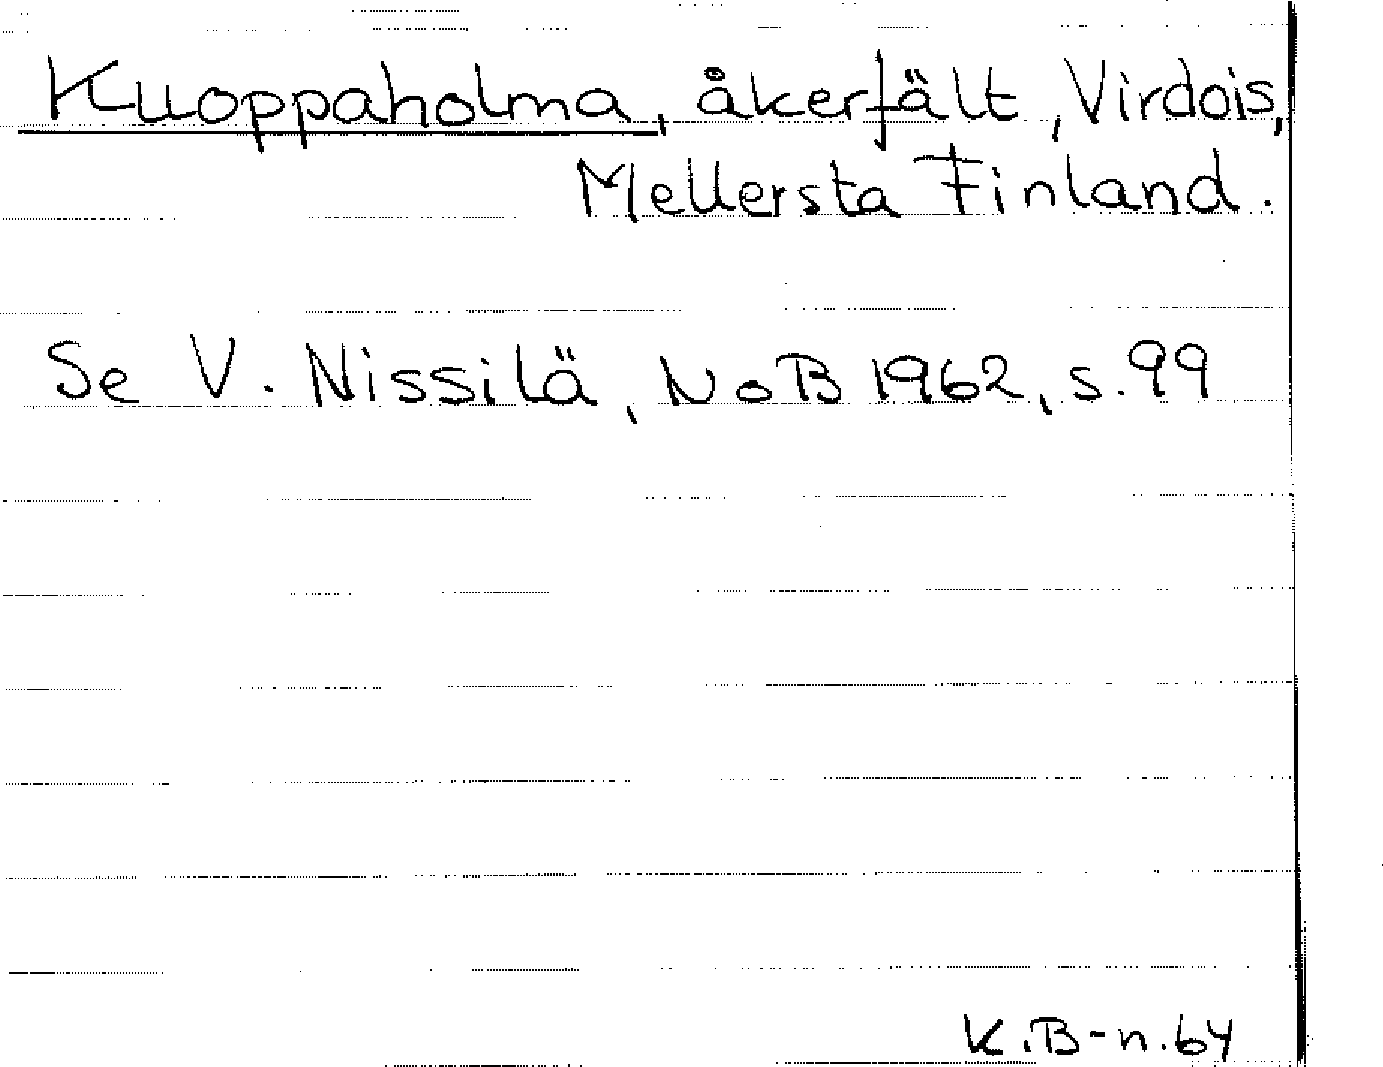 Kuoppaholma, åkerfält, Virdois,
Mellersta Finland.
Se V. Nissilä, NoB 1962, s. 99
K.B-n. 64